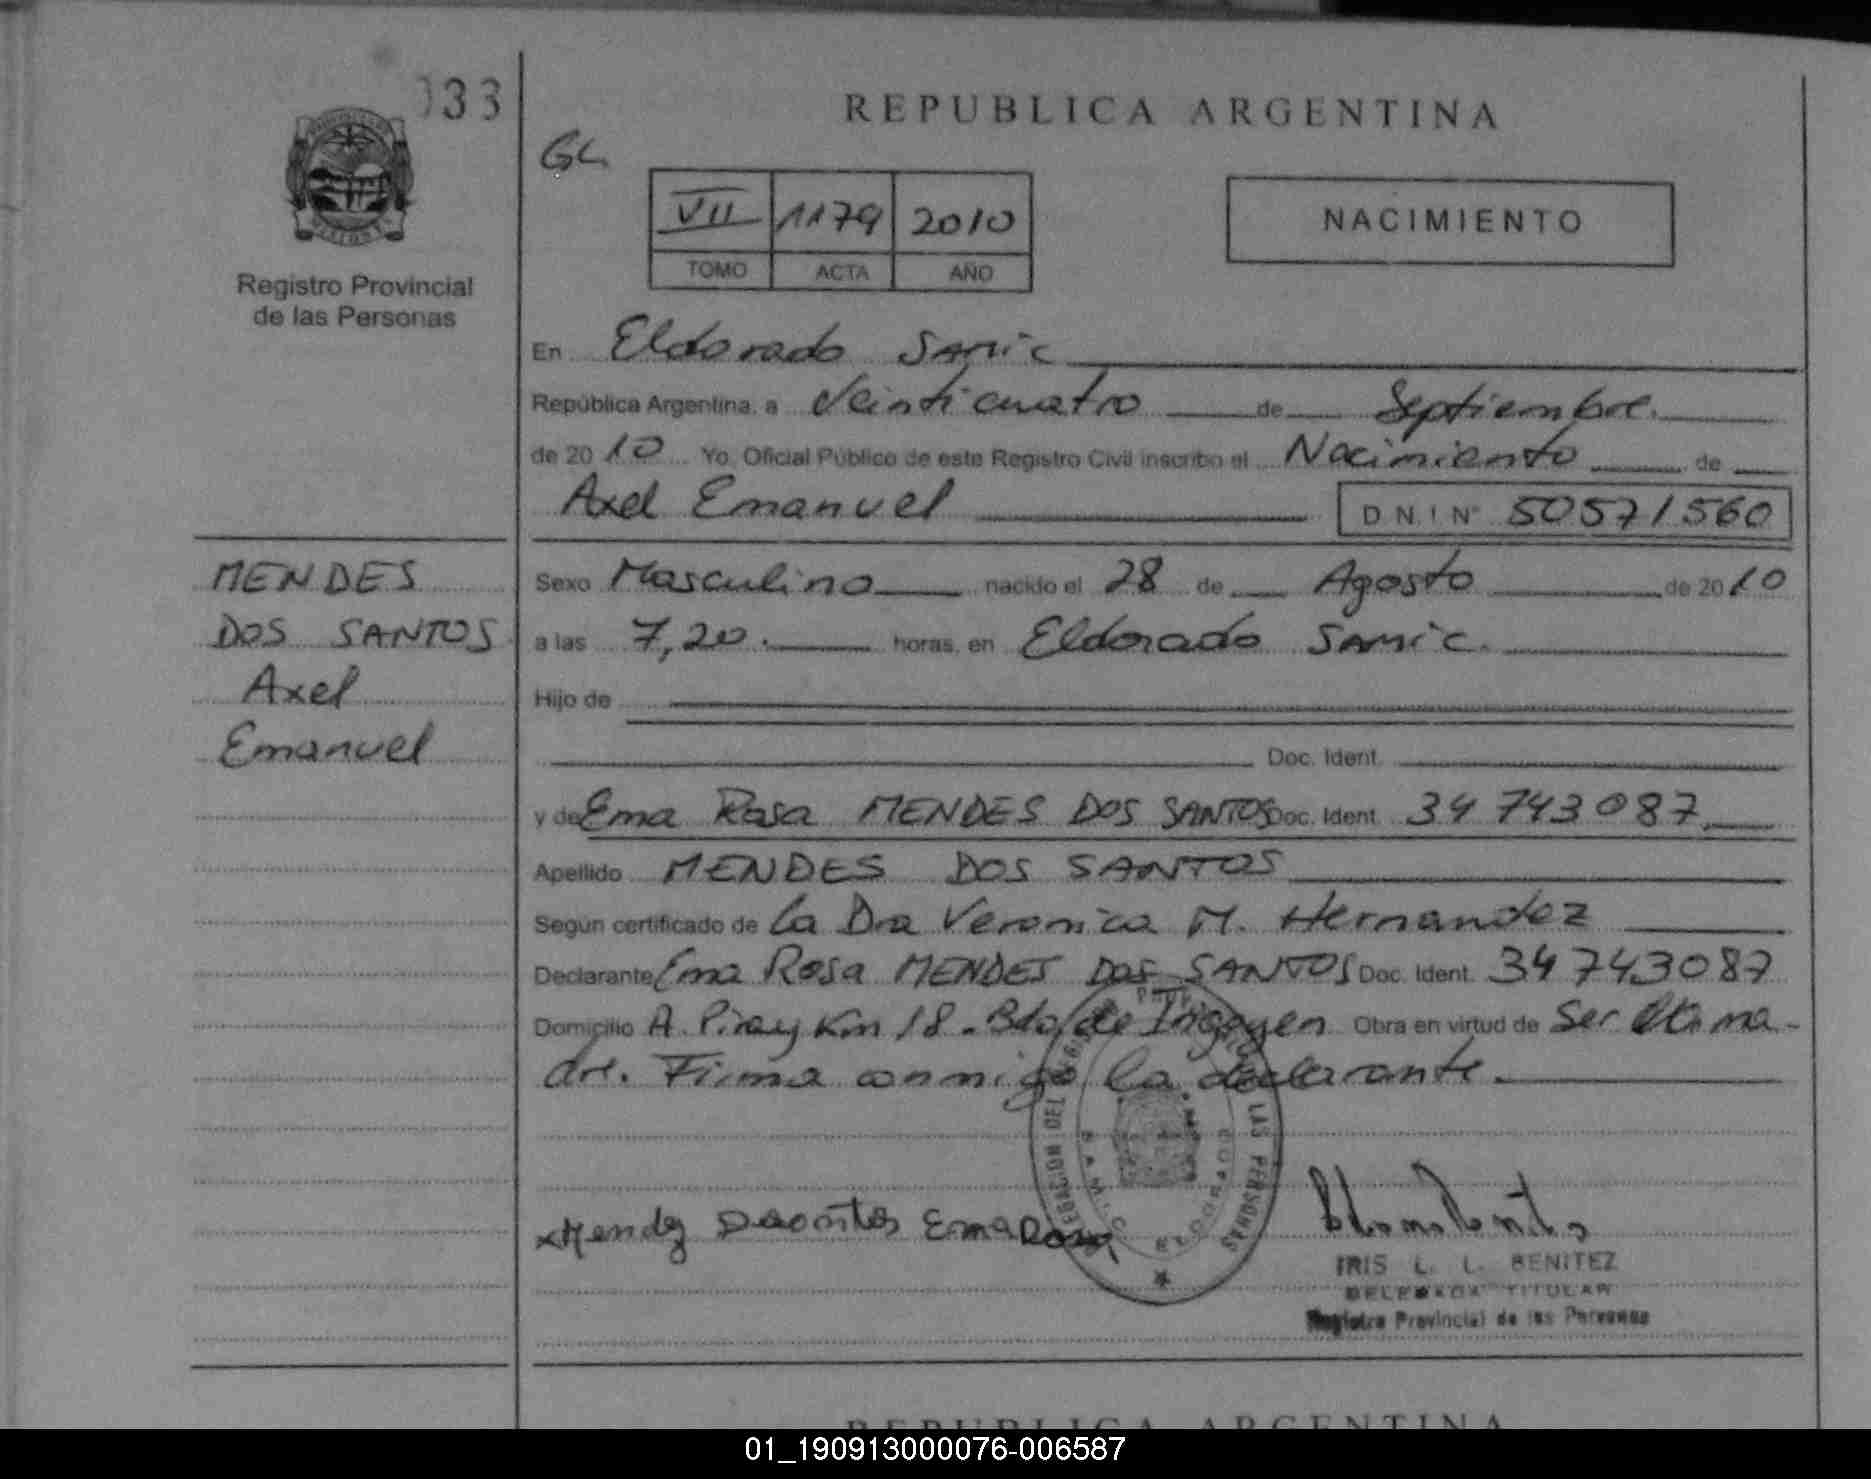 033
REPUBLICA ARGENTINA
GL
VII 1179 2010
TOMO ACTA AÑO
NACIMIENTO
Registro Provincial
de las Personas
En Eldorado Samic
República Argentina, a Veinticuatro de Septiembre.
de 2010 Yo, Oficial Público de este Registro Civil inscribo el Nacimiento de
Axel Emanuel D N I Nº 50571560
MENDES
DOS SANTOS
Axel
Emanuel
Sexo Masculino nacido el 28 de Agosto de 2010
a las 7,20. horas, en Eldorado Samic.
Hijo de
Doc. Ident.
y de Ema Rosa MENDES DOS SANTOS Doc. Ident. 34 743 087
Apellido MENDES DOS SANTOS
Según certificado de la Dra Veronica M. Hernandez
Declarante Ema Rosa MENDES DOS SANTOS Doc. Ident. 34 743 087
Domicilio A. Piray Km 18. Bdo de Irigoyen Obra en virtud de Ser la ma-
dre. Firma conmigo la declarante.
Ema Rosa
IRIS L. L. BENITEZ
DELEGADA TITULAR
Registro Provincial de las Personas
REPUBLICA ARGENTINA
01_190913000076-006587